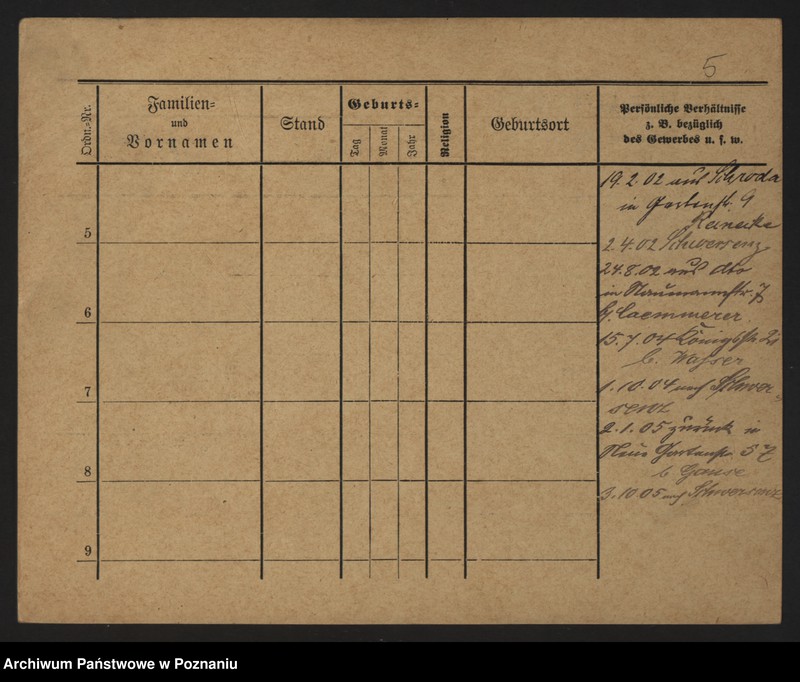 5
Ordn.-Nr.
Familien-
und
Vornamen
Stand
Geburts-
Tag
Monat
Jahr
Religion
Geburtsort
Persönliche Verhältnisse
z. B. bezüglich
des Gewerbes u. s. w.
19. 2. 02 aus Schroda
in Gartenst. 9
Reinecke
5
2. 4. 02 Schwersenz
24. 8. 02 aus dto
in Naumannstr. 7
6
b. Caemmerer
15. 7. 04 Königstr.
b. Wasser
7
1. 10. 04 nach Schwer-
senz
2. 1. 05 zurück in
Neue Gartenstr. 57
8
b Gause
3. 10 05 nach Schwersenz
9
Archiwum Państwowe w Poznaniu